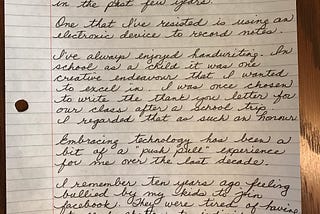 in the past few years.
One that I've resisted is using an
electronic device to record notes.
I've always enjoyed handwriting. In
school as a child it was one
creative endeavour that I wanted
to excel in. I was once chosen
to write the thank you letter for
our class after a school trip.
I regarded that as such an honour.
Embracing technology has been a
bit of a "push pull" experience
for me over the last decade.
I remember ten years ago feeling
bullied by my kids to join
facebook. They were tired of having